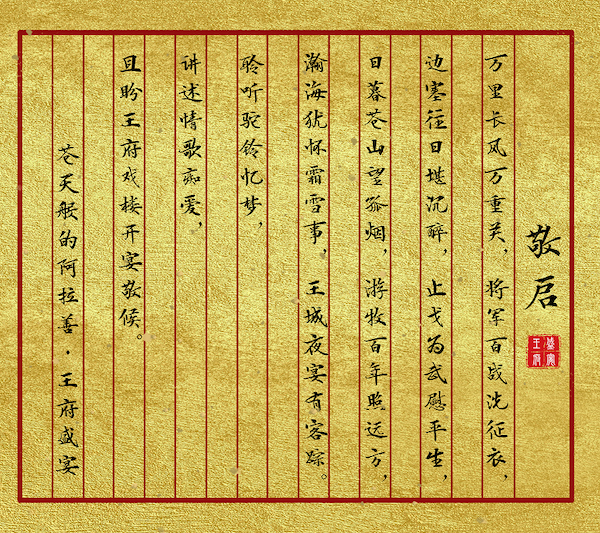 敬启
盛宴王府
万里长风万重关，将军百战洗征衣，
边塞往日堪沉醉，止戈为武慰平生，
日暮苍山望孤烟，游牧百年照远方，
瀚海犹怀霜雪事，王城夜宴有客踪。
聆听驼铃忆梦，
讲述情歌痴爱，
且盼王府戏楼开宴敬候。
苍天般的阿拉善·王府盛宴